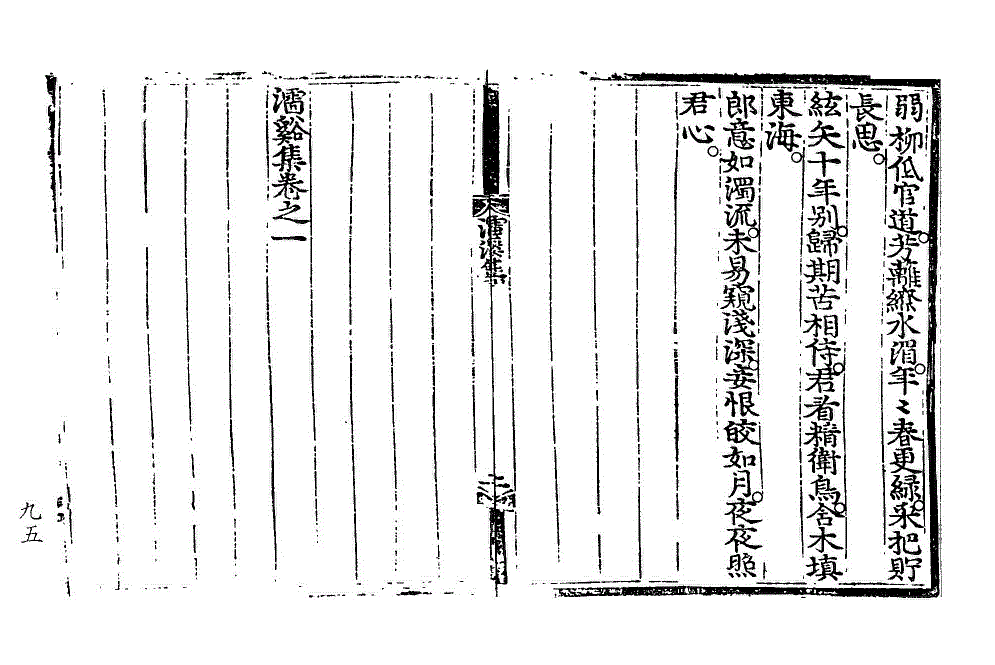 弱柳低官道。芳蘺繚水湄。年〻春更綠。采把貯
長思。
絃矢十年別。歸期苦相待。君看精衛鳥。含木填
東海。
郎意如濁流。未易窺淺深。妾恨皎如月。夜夜照
君心。
濡谿集
濡谿集卷之一
九五